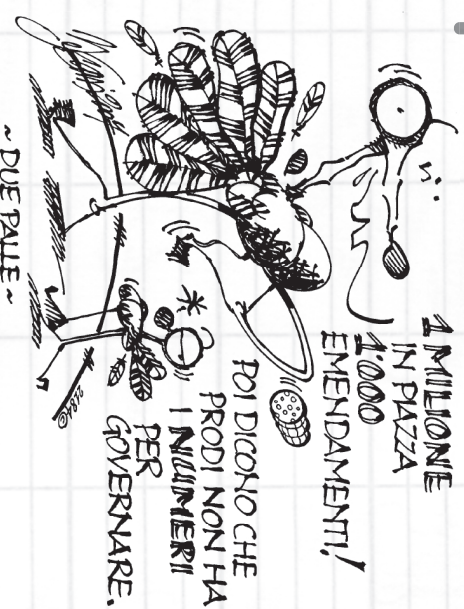 1 MILIONE
IN PIAZZA
1'000
EMENDAMENTI!
POI DICONO CHE
PRODI NON HA
I NUMERI
PER
GOVERNARE.
~ DUE PALLE ~